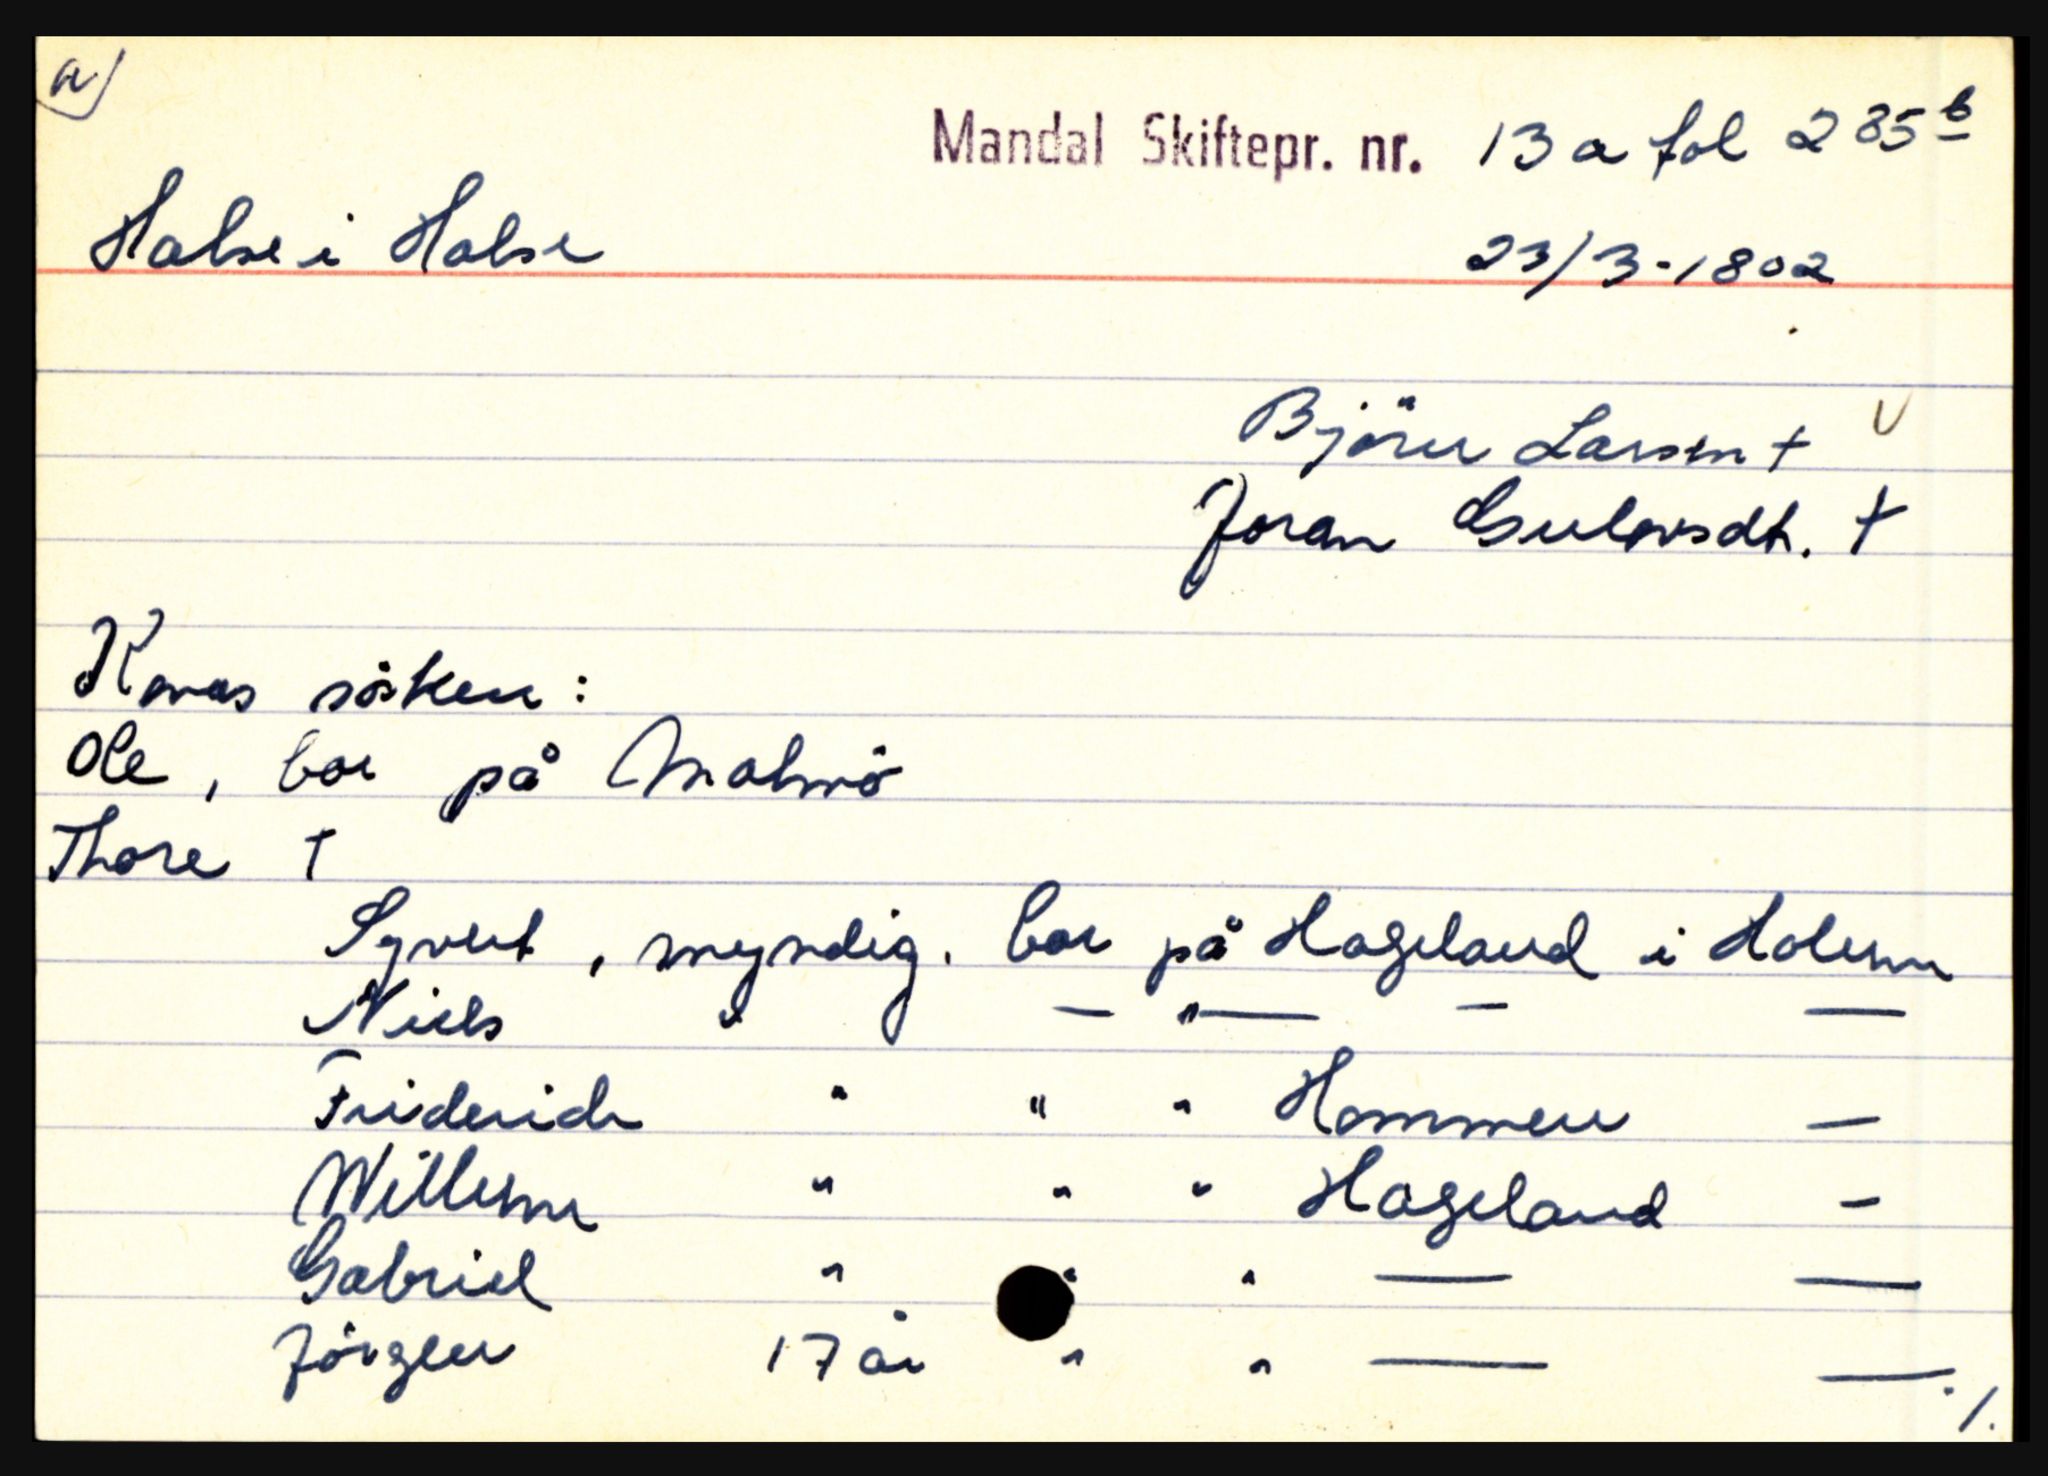 a)
Mandal Skiftepr. nr. 13 a fol 285 b
Halse i Halse 23/3-1802
Björn Larsen + V
Joran Gulovsdt. +
Konas sösken:
Ole, bor på Malmö
Thore +
Syvert, myndig. bor på Hageland i Holum
Niels " — " — — —
Friderich " " " Hommen —
Willum " " " Hageland —
Gabriel " " " — —
Jörgen 17 år " " — —
./.